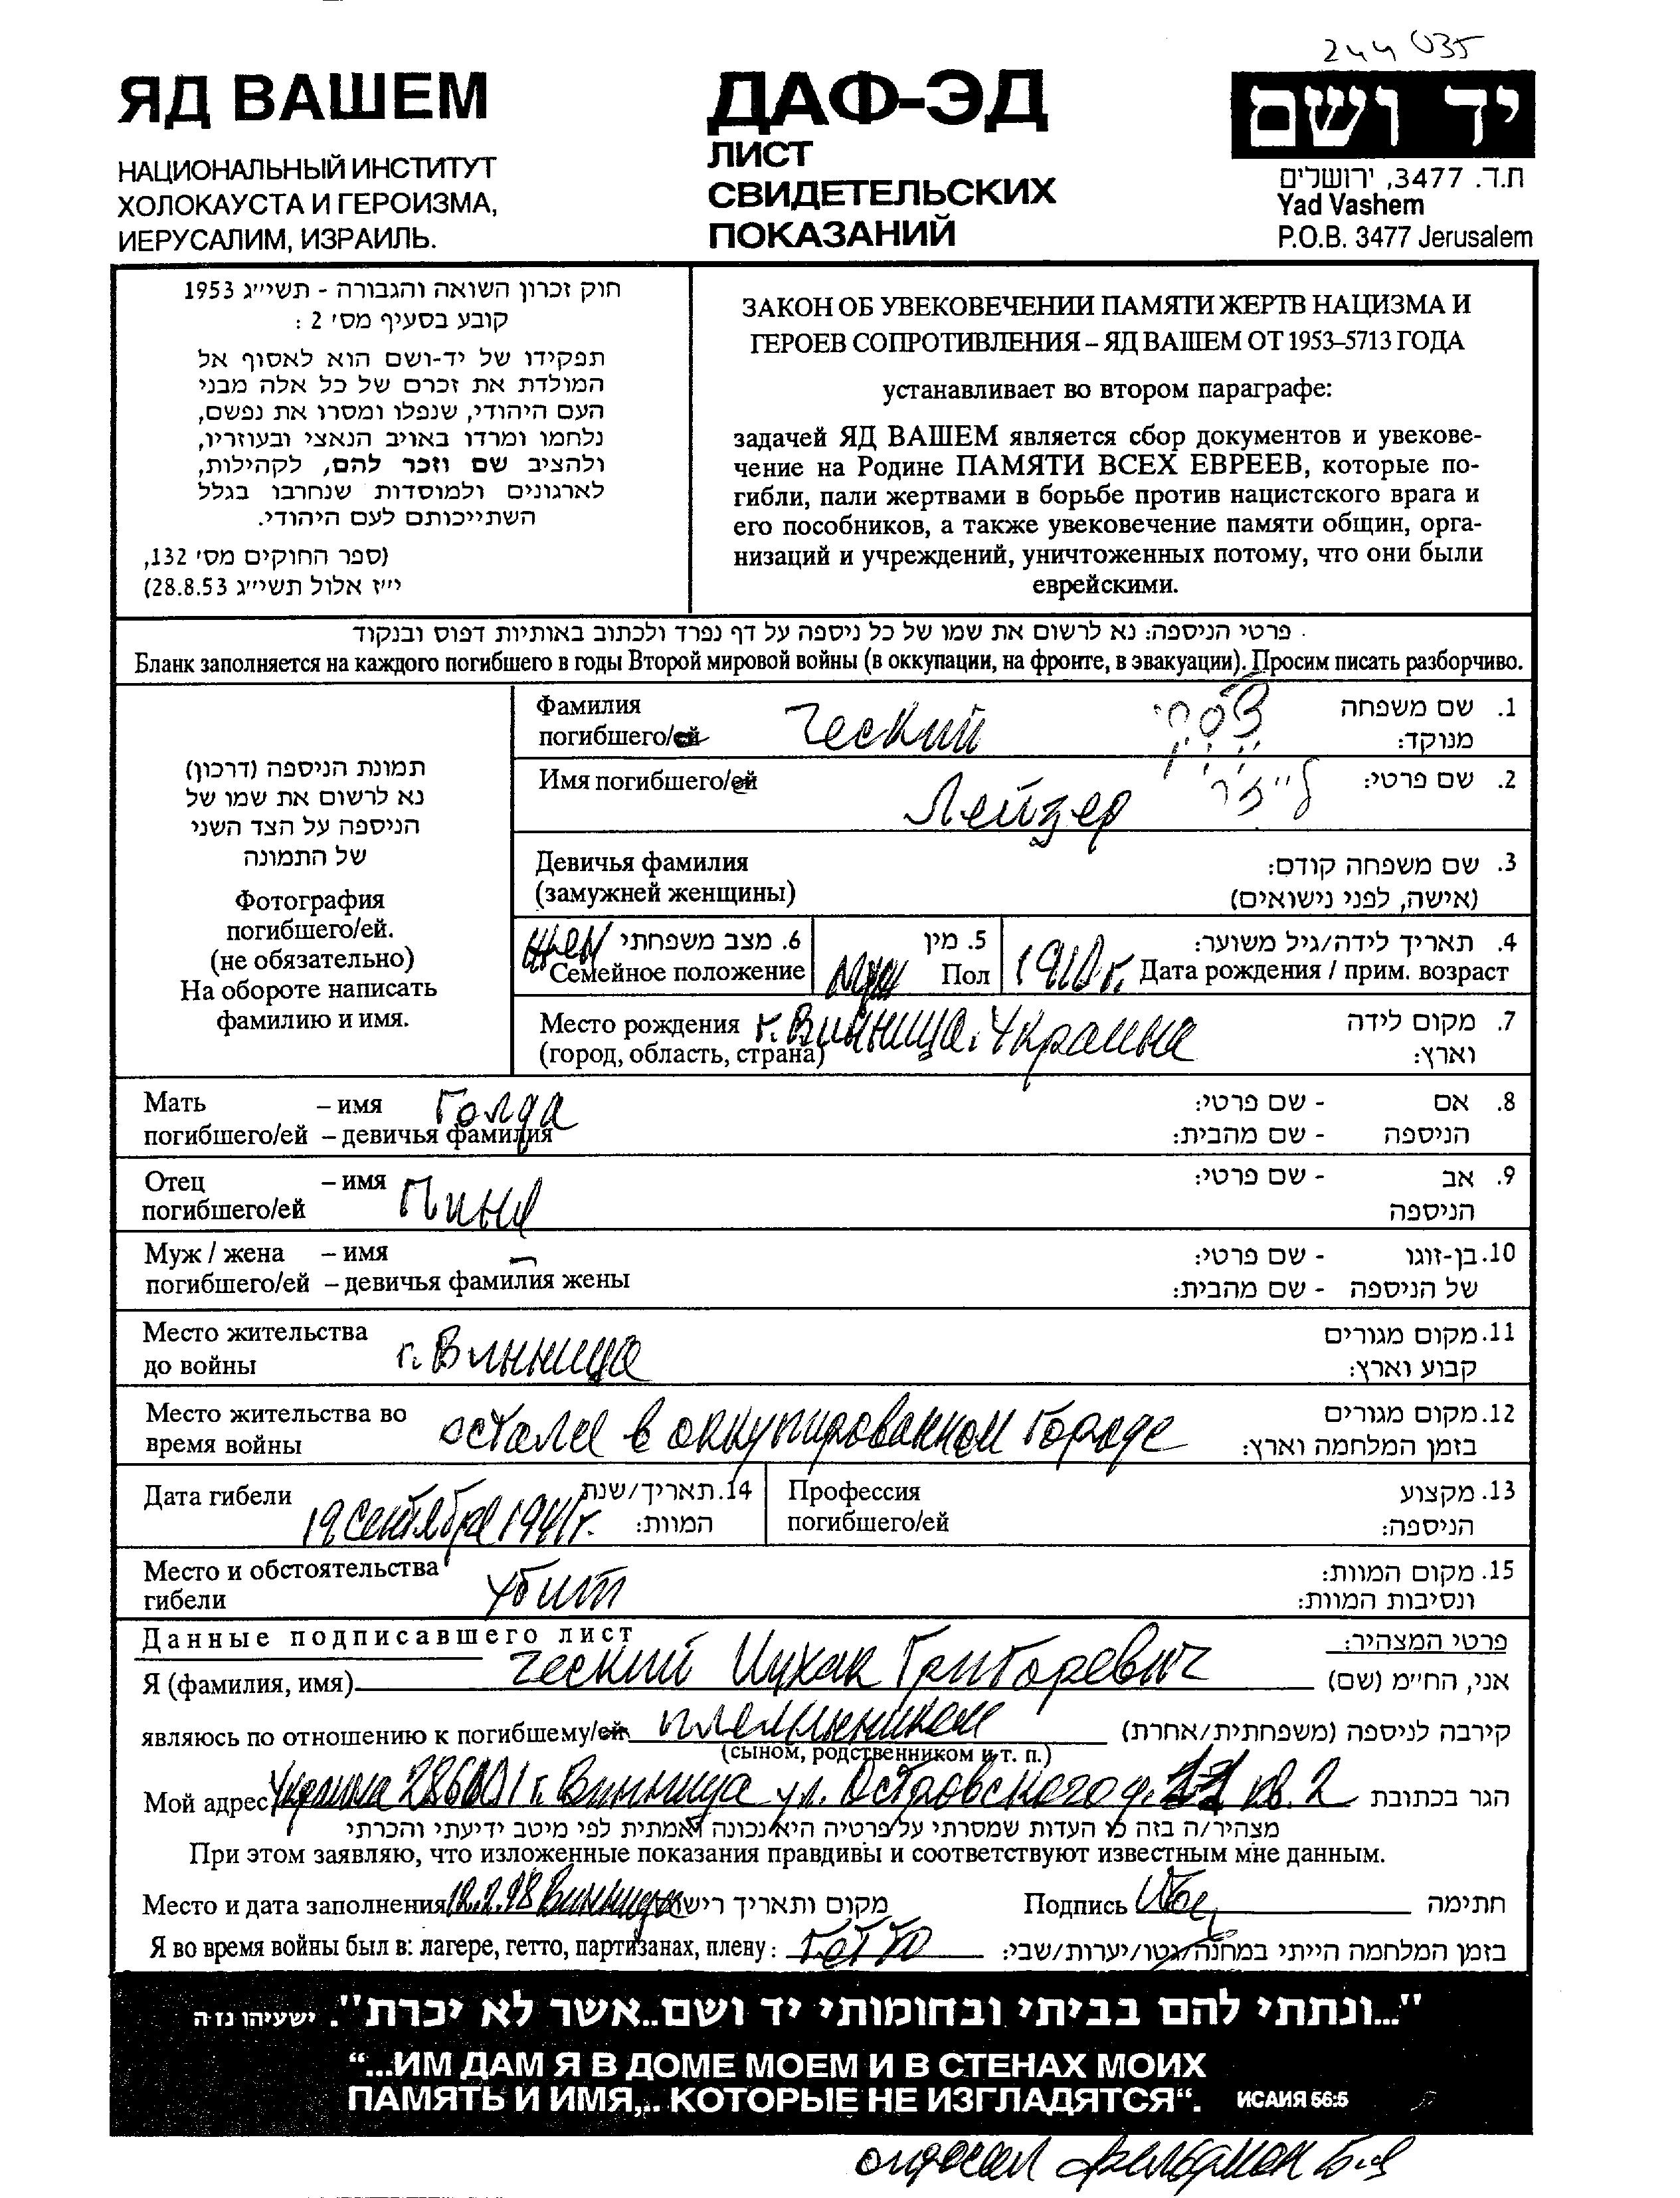 244035
ЯД ВАШЕМ
НАЦИОНАЛЬНЫЙ ИНСТИТУТ
ХОЛОКАУСТА И ГЕРОИЗМА,
ИЕРУСАЛИМ, ИЗРАИЛЬ.
ДАФ-ЭД
ЛИСТ
СВИДЕТЕЛЬСКИХ
ПОКАЗАНИЙ
יד ושם
ת.ד. 3477, ירושלים
Yad Vashem
P.O.B. 3477 Jerusalem
חוק זכרון השואה והגבורה - תשי״ג 1953
קובע בסעיף מס׳ 2 :
תפקידו של יד-ושם הוא לאסוף אל
המולדת את זכרם של כל אלה מבני
העם היהודי, שנפלו ומסרו את נפשם,
נלחמו ומרדו באויב הנאצי ובעוזריו,
ולהציב שם וזכר להם, לקהילות,
לארגונים ולמוסדות שנחרבו בגלל
השתייכותם לעם היהודי.
(ספר החוקים מס׳ 132,
י״ז אלול תשי״ג 28.8.53)
ЗАКОН ОБ УВЕКОВЕЧЕНИИ ПАМЯТИ ЖЕРТВ НАЦИЗМА И
ГЕРОЕВ СОПРОТИВЛЕНИЯ – ЯД ВАШЕМ ОТ 1953–5713 ГОДА
устанавливает во втором параграфе:
задачей ЯД ВАШЕМ является сбор документов и увекове-
чение на Родине ПАМЯТИ ВСЕХ ЕВРЕЕВ, которые по-
гибли, пали жертвами в борьбе против нацистского врага и
его пособников, а также увековечение памяти общин, орга-
низаций и учреждений, уничтоженных потому, что они были
еврейскими.
פרטי הניספה: נא לרשום את שמו של כל ניספה על דף נפרד ולכתוב באותיות דפוס ובנקוד
Бланк заполняется на каждого погибшего в годы Второй мировой войны (в оккупации, на фронте, в эвакуации). Просим писать разборчиво.
תמונת הניספה (דרכון)
נא לרשום את שמו של
הניספה על הצד השני
של התמונה
Фотография
погибшего/ей.
(не обязательно)
На обороте написать
фамилию и имя.
Фамилия 1. שם משפחה
погибшего/ей Ческий מנוקד:
Имя погибшего/ей Лейзер לייזר 2. שם פרטי:
Девичья фамилия 3. שם משפחה קודם:
(замужней женщины) (אישה, לפני נישואים)
жен 6. מצב משפחתי 5. מין 4. תאריך לידה/גיל משוער:
Семейное положение муж Пол 1910 г. Дата рождения / прим. возраст
Место рождения г. Винница. Украина 7. מקום לידה
(город, область, страна) וארץ:
Мать – имя Голда 8. אם - שם פרטי:
погибшего/ей – девичья фамилия הניספה - שם מהבית:
Отец – имя Пиня 9. אב - שם פרטי:
погибшего/ей הניספה
Муж / жена – имя – 10. בן-זוגו - שם פרטי:
погибшего/ей – девичья фамилия жены של הניספה - שם מהבית:
Место жительства 11. מקום מגורים
до войны г. Винница קבוע וארץ:
Место жительства во 12. מקום מגורים
время войны остался в оккупированном городе בזמן המלחמה וארץ:
Дата гибели 14. תאריך/שנת Профессия 13. מקצוע
19 сентября 1941 г. המוות: погибшего/ей הניספה:
Место и обстоятельства 15. מקום המוות:
гибели убит ונסיבות המוות:
Данные подписавшего лист פרטי המצהיר:
Я (фамилия, имя) Ческий Ицхак Григоревич אני, החי״מ (שם)
являюсь по отношению к погибшему/ей племянником קירבה לניספה (משפחתית/אחרת)
(сыном, родственником и т. п.)
Мой адрес Украина 286001 г. Винница ул. Островского д. 11 кв. 2 הגר בכתובת
מצהיר/ה בזה כי העדות שמסרתי על פרטיה היא נכונה ואמתית לפי מיטב ידיעתי והכרתי
При этом заявляю, что изложенные показания правдивы и соответствуют известным мне данным.
Место и дата заполнения Винница מקום ותאריך רישום Подпись חתימה
Я во время войны был в: лагере, гетто, партизанах, плену: гетто בזמן המלחמה הייתי במחנה/גטו/יערות/שבי:
"...ונתתי להם בביתי ובחומותי יד ושם..אשר לא יכרת". ישעיהו נז ה
“...ИМ ДАМ Я В ДОМЕ МОЕМ И В СТЕНАХ МОИХ
ПАМЯТЬ И ИМЯ,.. КОТОРЫЕ НЕ ИЗГЛАДЯТСЯ“. ИСАИЯ 56:5
Фельдман